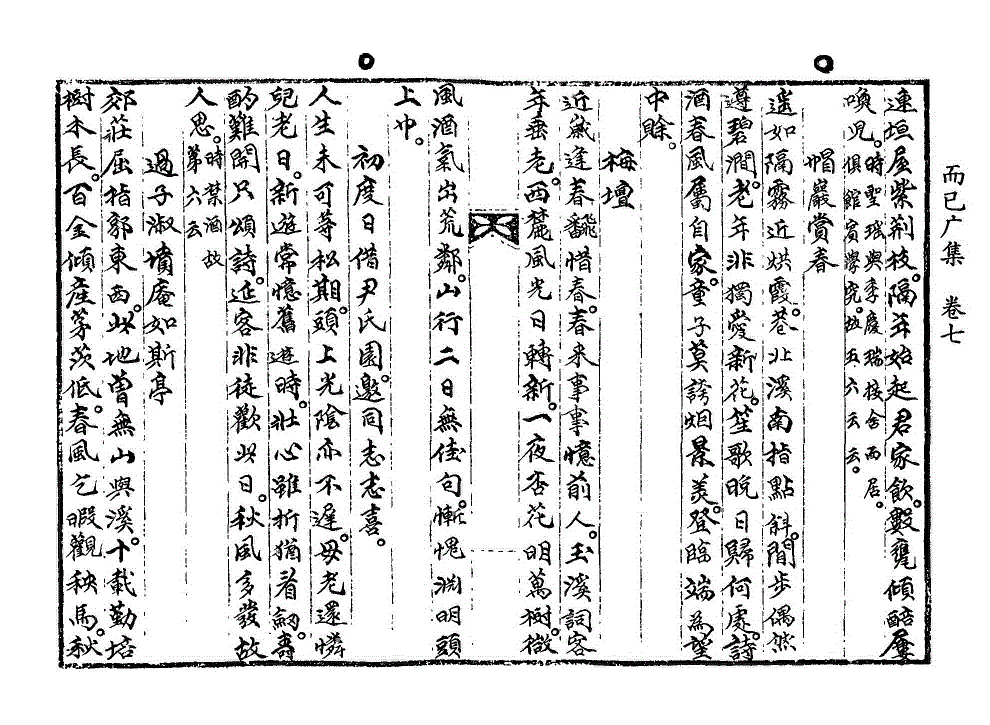 而已广集　卷七
連垣屋紫荊枝。隔年始起君家飲。數甕傾醅屢
喚児。時聖瑊與李慶瑞接舍而居。
俱館賓學究。故五六云云。
帽巖賞春
遠如隔霧近烘霞。巷北溪南指點斜。閒步偶然
遵碧澗。老年非獨愛新花。笙歌晚日歸何處。詩
酒春風屬自家。童子莫誇烟景美。登臨端為望
中賒。
梅壇
近歲逢春飜惜春。春来事事憶前人。玉溪詞客
年垂老。西麓風光日轉新。一夜杏花明萬樹。微
風酒氣出荒鄰。山行二日無佳句。慚愧淵明頭
上巾。
初度日借尹氏園。邀同志志喜。
人生未可等松期。頭上光陰亦不遲。母老還憐
兒老日。新遊常憶舊遊時。壯心雖折猶看劒。壽
酌難開只頌詩。延客非徒歡此日。秋風多發故
人思。時禁酒故
第六云
過子淑墳庵如斯亭
郊莊屈指郭東西。此地曾無山與溪。十載勤培
樹木長。百金傾産茅茨低。春風乞暇觀秧馬。秋